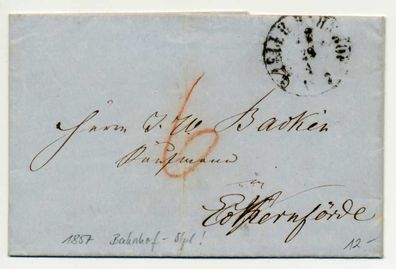 6
Herrn J. W. Backen
Kaufmann
in
Eckernförde
1857 Bahnhof - Stpl!
12-